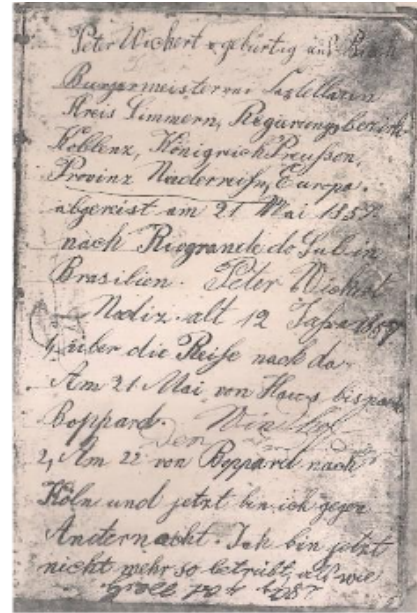 Peter Wichert gebürtig aus
Burgermeisterei
Kreis Simmern, Regierungsbezirk
Koblenz, Königreich Preußen,
Provinz Europa.
abgereist am 21 Mai 1857
nach Riogrande do Sul in
Brasilien. Peter Wichert
alt 12 1857
1, über die Reise nach da
Am 21 Mai von Haus bis nach
Boppard.
den
2, Am 22 von Boppard nach
Köln und jetzt bin ich gegen
Andernacht. Ich bin jetzt
nicht mehr so betrübt, als wie